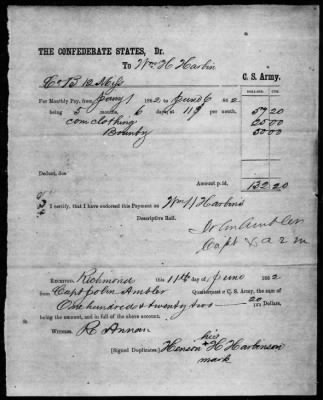 THE CONFEDERATE STATES, Dr.
To Wm H Harbin
Co B 12 Miss C. S. Army.
DOLLARS. CTS.
For Monthly Pay, from Jany 1 1862 to June 6 1862
being 5 months, 6 days, at 11$ per month, 57 20
com clothing 25 00
Bounty 50 00
Deduct, due
Amount paid, 132.20
I certify, that I have endorsed this Payment on Wm H Harbins
Descriptive Roll.
John Ambler
Capt & a 2 m
RECEIVED, Richmond this 11th day of June 1862
from Capt John Ambler Quartermaster C. S. Army, the sum of
One hundred & twenty two 20 Dollars.
being the amount, and in full of the above account.
Witness R Annan
his
[Signed Duplicates] Henson H Harbenson
mark